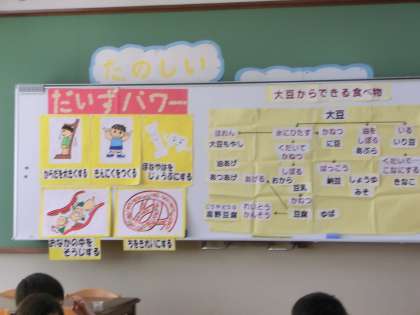 たのしい
だいずパワー
からだを大きくする
きんにくをつくる
ほねやはを
じょうぶにする
おなかの中を
そうじする
ちをきれいにする
大豆からできる食べ物
大豆
ほおん
大豆もやし
水にひたす
かねつ
に豆
油を
しぼる
あぶら
いる
いり豆
くだいて
かねつ
しぼる
おから
豆乳
かねつ
ゆば
豆腐
れいとう
かんそう
高野豆腐
あげる
油あげ
あつあげ
はっこう
納豆
しょうゆ
みそ
くだいて
こなにする
きなこ